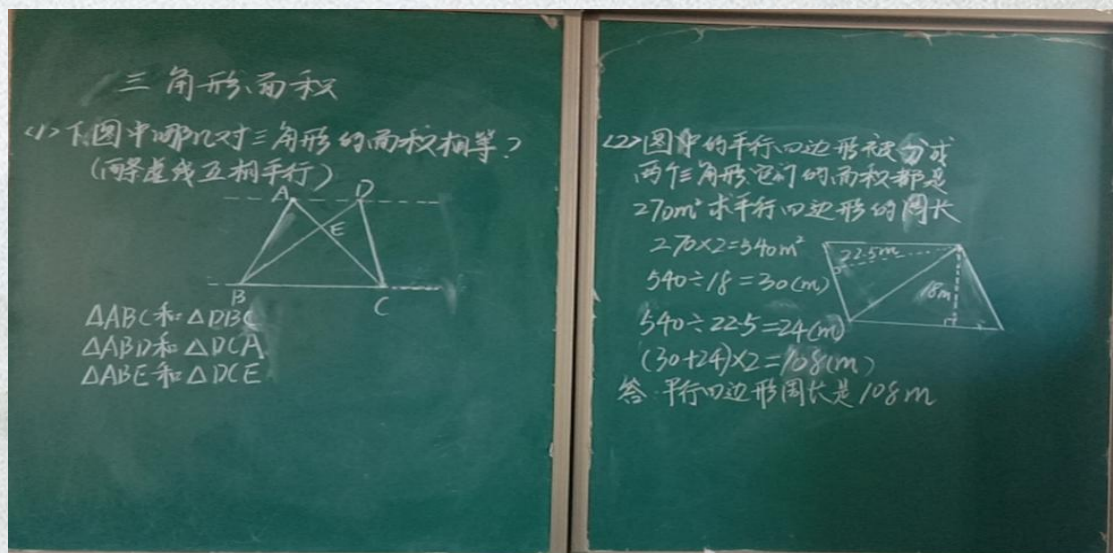 三角形面积
<1>下图中哪几对三角形的面积相等?
(两条虚线互相平行)
A D
E
B
C
△ABC和△DBC
△ABD和△DCA
△ABE和△DCE
<2>图中的平行四边形被分成
两个三角形它们的面积都是
270m²求平行四边形的周长
270×2=540m²
22.5m
540÷18=30(m)
18m
540÷22.5=24(m)
(30+24)×2=108(m)
答:平行四边形周长是108m